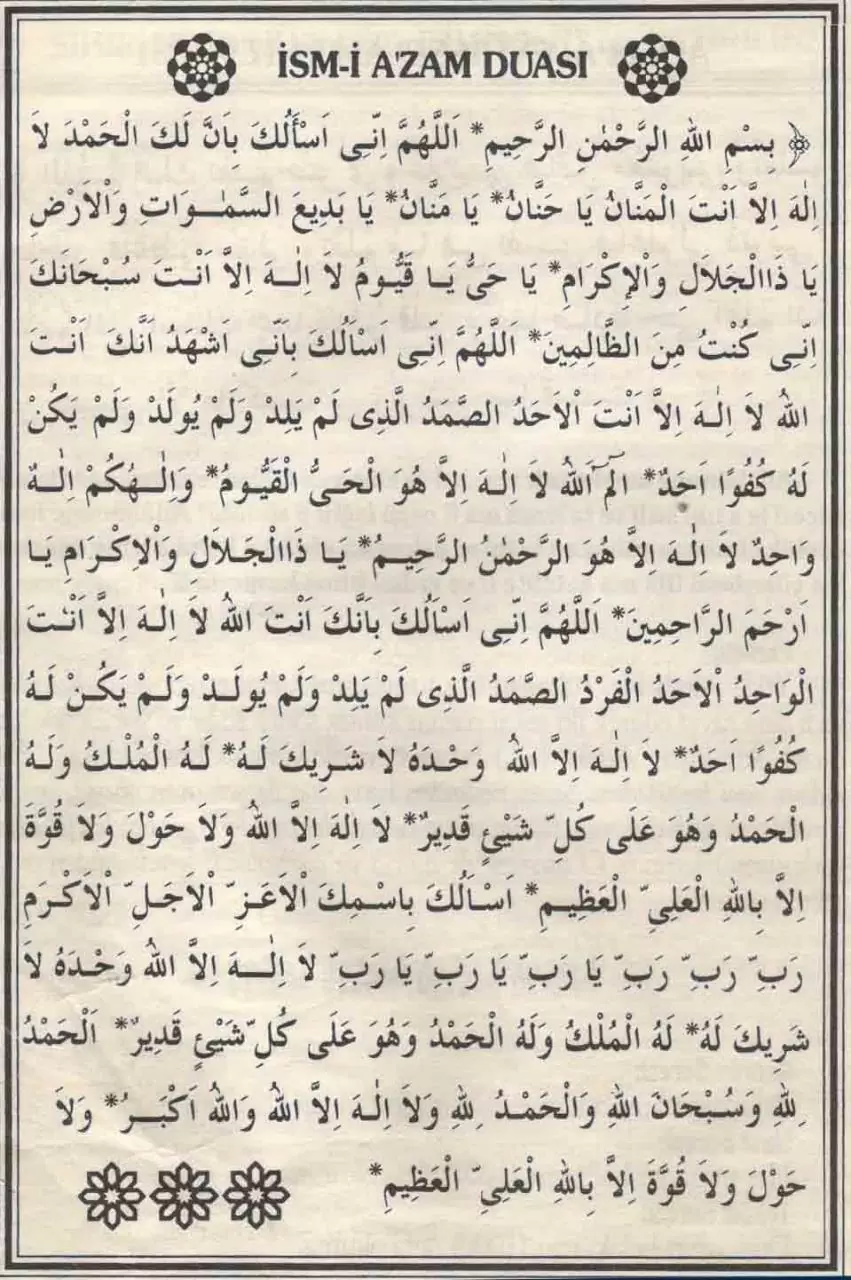 İSM-İ A'ZAM DUASI
بِسْمِ اللهِ الرَّحْمٰنِ الرَّحِيمِ* اَللَّهُمَّ اِنّٖى اَسْأَلُكَ بِاَنَّ لَكَ الْحَمْدَ لاَ
اِلٰهَ اِلاَّ اَنْتَ الْمَنَّانُ يَا حَنَّانُ* يَا مَنَّانُ* يَا بَدِيعَ السَّمٰوَاتِ وَاْلاَرْضِ
يَا ذَاالْجَلاَلِ وَاْلاِكْرَامِ* يَا حَىُّ يَا قَيُّومُ لاَ اِلٰهَ اِلاَّ اَنْتَ سُبْحَانَكَ
اِنّٖى كُنْتُ مِنَ الظَّالِمِينَ* اَللَّهُمَّ اِنّٖى اَسْاَلُكَ بِاَنّٖى اَشْهَدُ اَنَّكَ اَنْتَ
اللهُ لاَ اِلٰهَ اِلاَّ اَنْتَ اْلاَحَدُ الصَّمَدُ الَّذِى لَمْ يَلِدْ وَلَمْ يُولَدْ وَلَمْ يَكُنْ
لَهُ كُفُوًا اَحَدٌ* الٓمٓ اَللهُ لاَ اِلٰهَ اِلاَّ هُوَ الْحَىُّ الْقَيُّومُ* وَاِلٰهُكُمْ اِلٰهٌ
وَاحِدٌ لاَ اِلٰهَ اِلاَّ هُوَ الرَّحْمٰنُ الرَّحِيمُ* يَا ذَاالْجَلاَلِ وَاْلاِكْرَامِ يَا
اَرْحَمَ الرَّاحِمِينَ* اَللَّهُمَّ اِنّٖى اَسْاَلُكَ بِاَنَّكَ اَنْتَ اللهُ لاَ اِلٰهَ اِلاَّ اَنْتَ
الْوَاحِدُ اْلاَحَدُ الْفَرْدُ الصَّمَدُ الَّذِى لَمْ يَلِدْ وَلَمْ يُولَدْ وَلَمْ يَكُنْ لَهُ
كُفُوًا اَحَدٌ* لاَ اِلٰهَ اِلاَّ اللهُ وَحْدَهُ لاَ شَرِيكَ لَهُ* لَهُ الْمُلْكُ وَلَهُ
الْحَمْدُ وَهُوَ عَلَى كُلِّ شَيْئٍ قَدِيرٌ* لاَ اِلٰهَ اِلاَّ اللهُ وَلاَ حَوْلَ وَلاَ قُوَّةَ
اِلاَّ بِاللهِ الْعَلِىِّ الْعَظِيمِ* اَسْاَلُكَ بِاسْمِكَ اْلاَعَزِّ اْلاَجَلِّ اْلاَكْرَمِ
رَبِّ رَبِّ رَبِّ يَا رَبِّ يَا رَبِّ يَا رَبِّ لاَ اِلٰهَ اِلاَّ اللهُ وَحْدَهُ لاَ
شَرِيكَ لَهُ* لَهُ الْمُلْكُ وَلَهُ الْحَمْدُ وَهُوَ عَلَى كُلِّ شَيْئٍ قَدِيرٌ* اَلْحَمْدُ
لِلهِ وَسُبْحَانَ اللهِ وَالْحَمْدُ لِلهِ وَلاَ اِلٰهَ اِلاَّ اللهُ وَاللهُ اَكْبَرُ* وَلاَ
حَوْلَ وَلاَ قُوَّةَ اِلاَّ بِاللهِ الْعَلِىِّ الْعَظِيمِ*